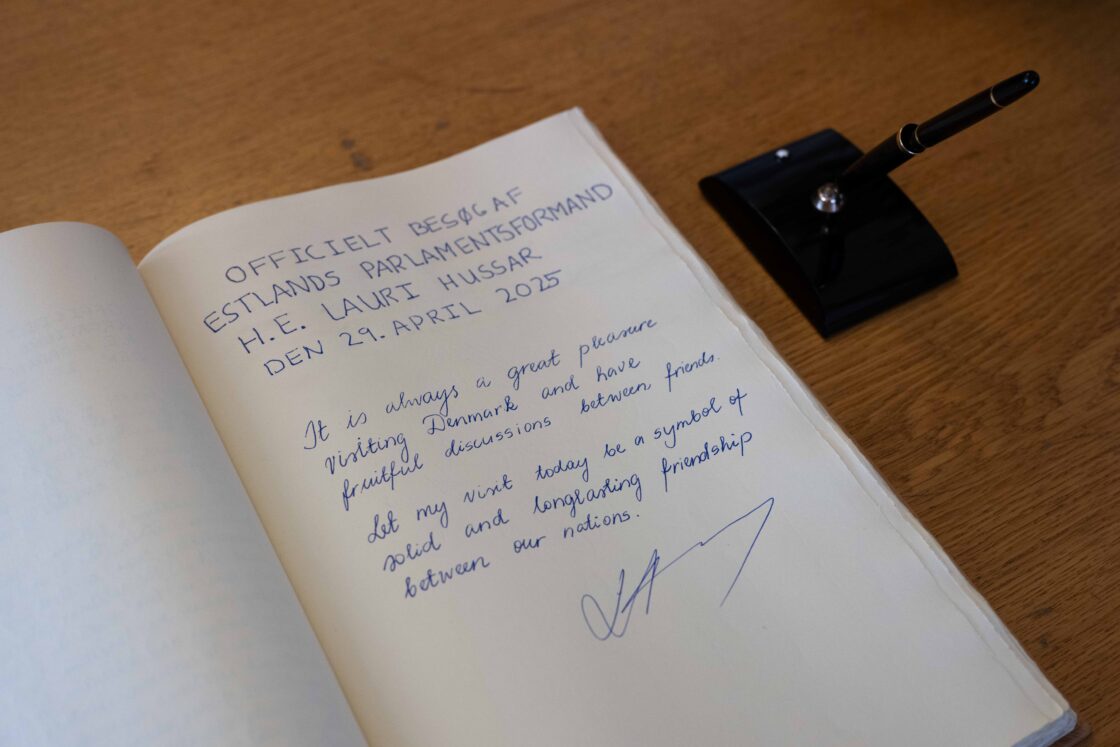 OFFICIELT BESØG AF
ESTLANDS PARLAMENTSFORMAND
H.E. LAURI HUSSAR
DEN 29. APRIL 2025
It is always a great pleasure
visiting Denmark and have
fruitful discussions between friends.
Let my visit today be a symbol of
solid and longlasting friendship
between our nations.